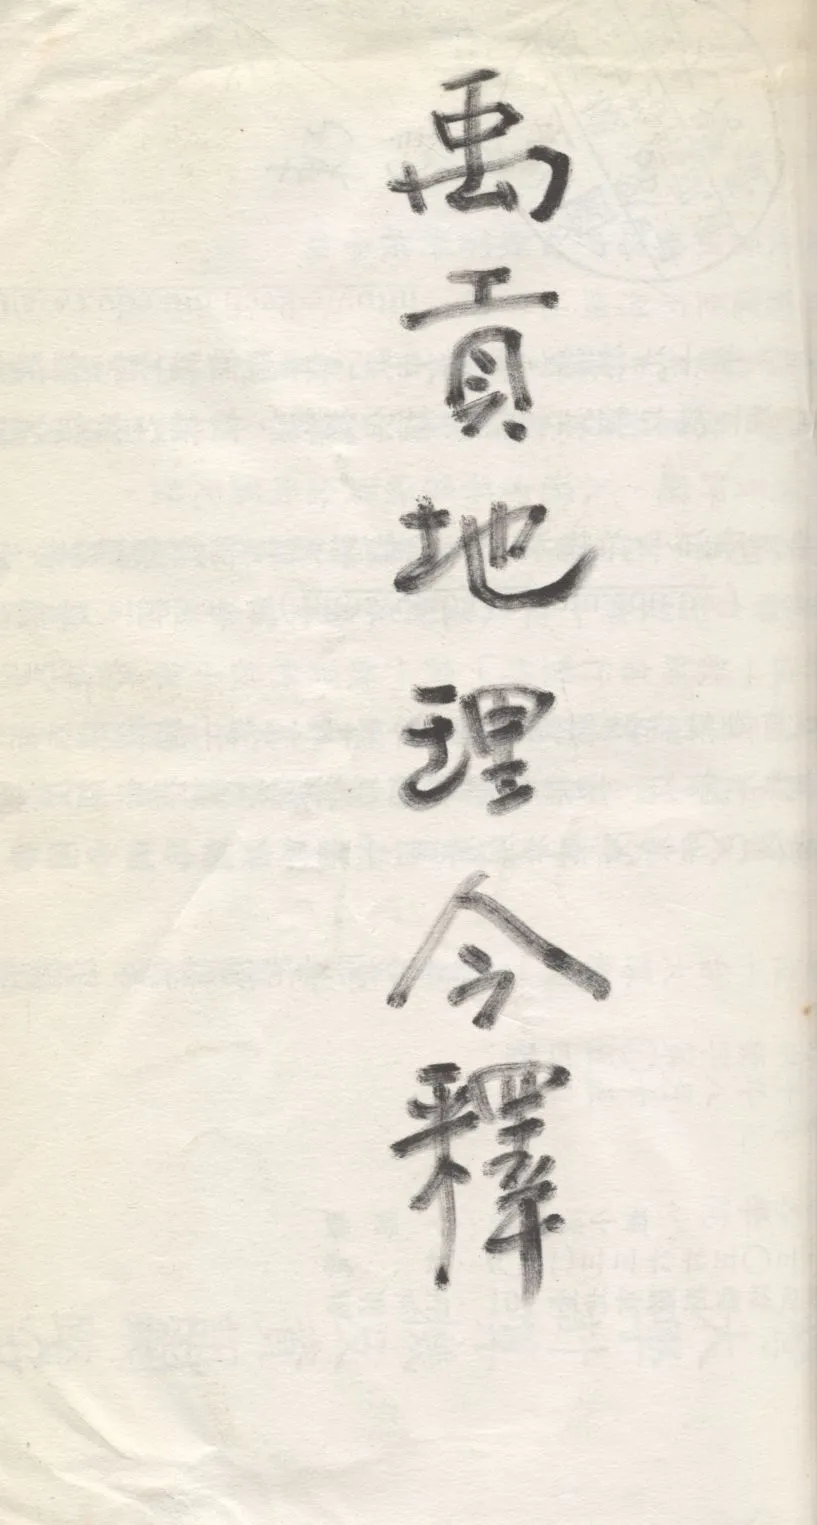 禹貢地理今釋